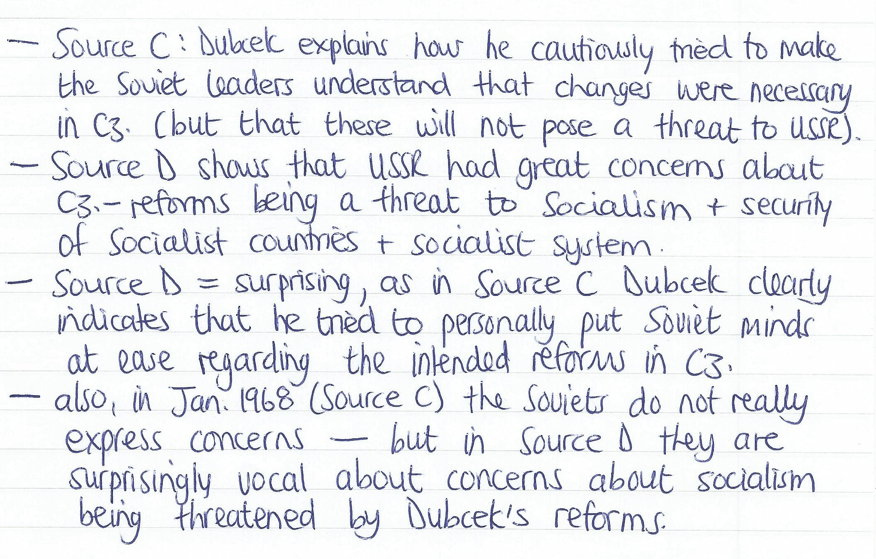 — Source C: Dubcek explains how he cautiously tried to make
the Soviet leaders understand that changes were necessary
in C3. (but that these will not pose a threat to USSR).
— Source D shows that USSR had great concerns about
C3. – reforms being a threat to Socialism + security
of Socialist countries + socialist system.
— Source D = surprising, as in Source C Dubcek clearly
indicates that he tried to personally put Soviet minds
at ease regarding the intended reforms in C3.
— also, in Jan. 1968 (Source C) the Soviets do not really
express concerns — but in Source D they are
surprisingly vocal about concerns about socialism
being threatened by Dubcek's reforms.